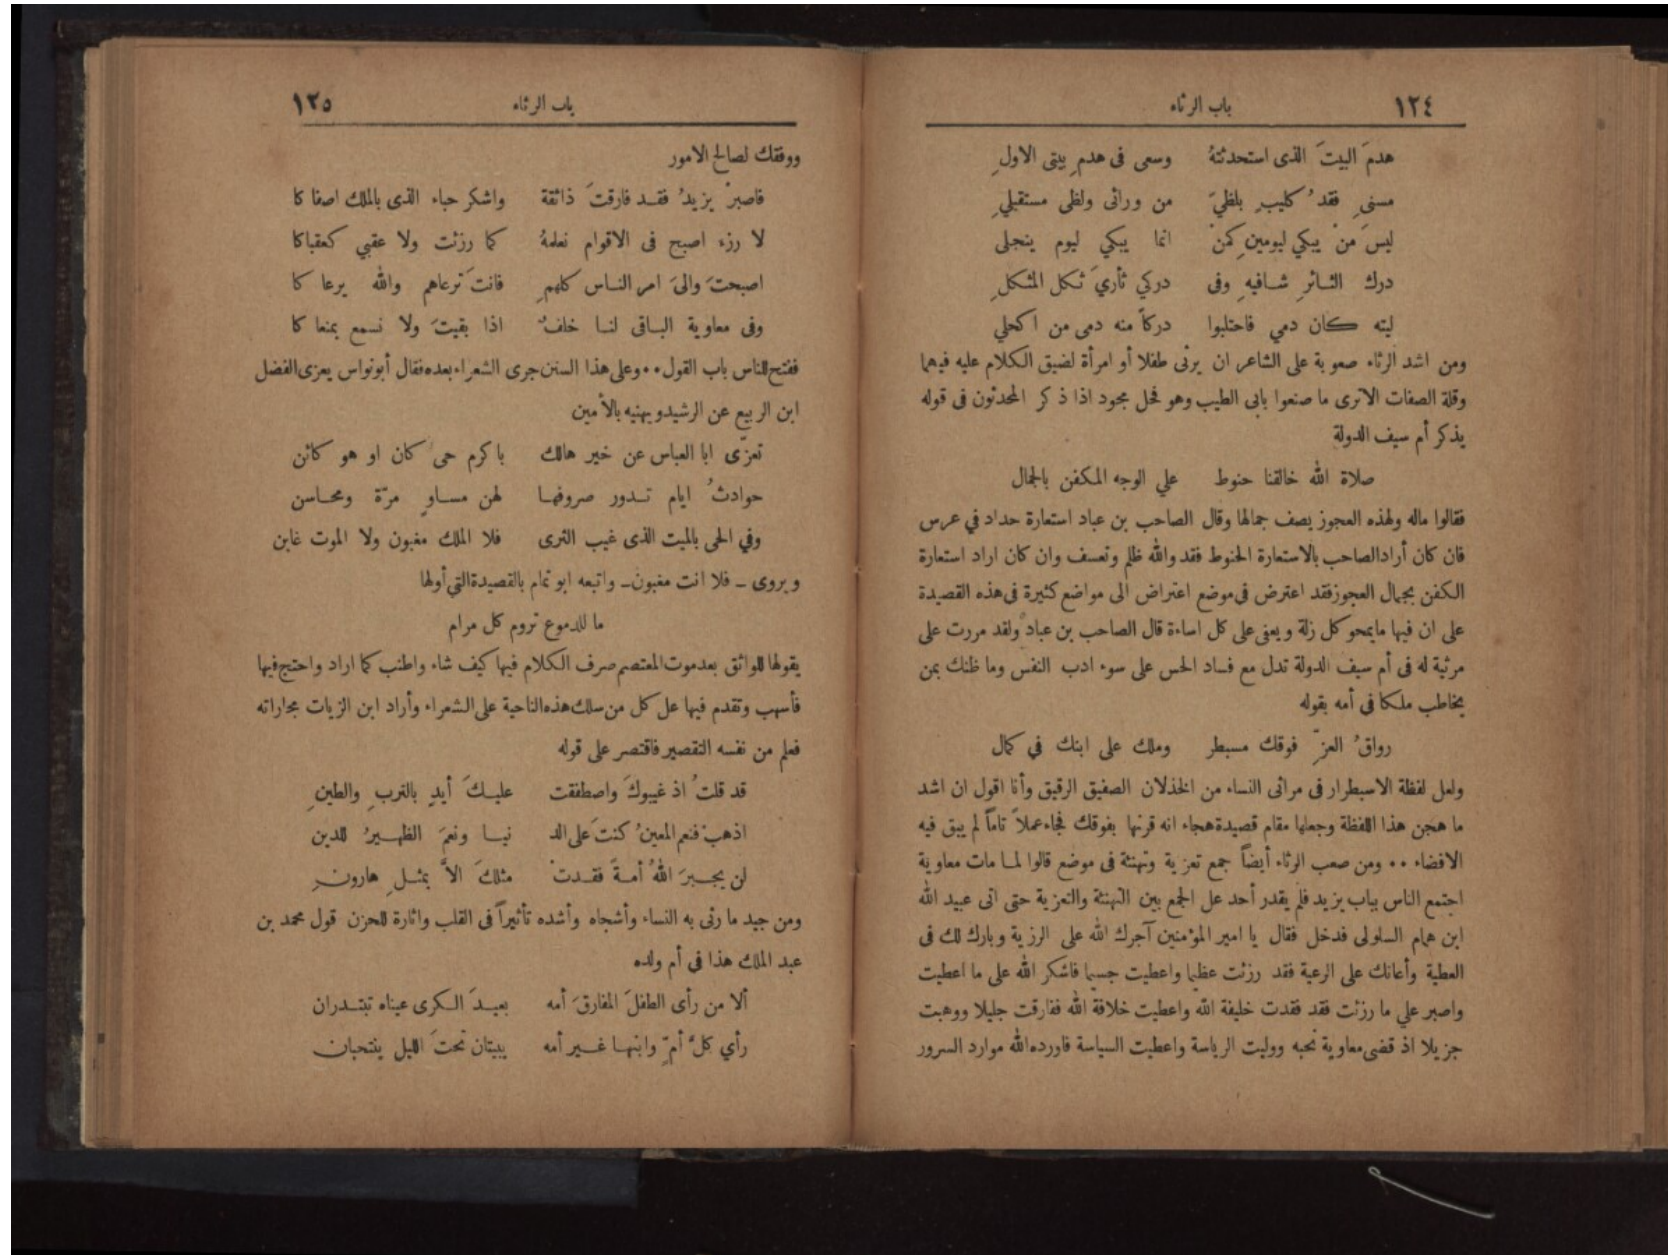 ١٢٤ باب الرثاء
هدمَ البيتَ الذى استحدثتهُ وسعى فى هدمِ بيتى الاولِ
مسنىِ فقدُ كليبٍ بلظيً من ورائى ولظى مستقبلىِ
ليسَ منْ يبكي ليومينِ كمنْ انما يبكي ليوم ينجلى
درك الثـائرِ شـافيهِ وفى دركي ثأريَ ثـكل المثـكلِ
ليته كـان دمي فاحتلبوا دركاً منه دمى من اكحلي
ومن اشد الرثاء صعوبة على الشاعر ان يرثى طفلا أو امرأة لضيق الكلام عليه فيهما
وقلة الصفات الاترى ما صنعوا بابى الطيب وهو فحل مجود اذا ذكر المحدثون فى قوله
يذكر أم سيف الدولة
صلاة الله خالقنا حنوط علي الوجه المكفن بالجمال
فقالوا ماله ولهذه العجوز يصف جمالها وقال الصاحب بن عباد استعارة حداد في عرس
فان كان أراد الصاحب بالاستعارة الحنوط فقد والله ظلم وتعسف وان كان اراد استعارة
الكفن بجمال العجوز فقد اعترض فى موضع اعتراض الى مواضع كثيرة فى هذه القصيدة
على ان فيها مايمحو كل زلة ويعفى على كل اساءة قال الصاحب بن عباد ولقد مررت على
مرثية له فى أم سيف الدولة تدل مع فساد الحس على سوء ادب النفس وما ظنك بمن
يخاطب ملكا فى أمه بقوله
رواقُ العزِّ فوقك مسبطر وملك على ابنك في كمال
ولعل لفظة الاسبطرار فى مراثى النساء من الخذلان الصفيق الرقيق وأنا اقول ان اشد
ما هجن هذا اللفظة وجعلها مقام قصيدة هجاء انه قرنها بفوقك فجاء عملاً تاماً لم يبق فيه
الافضاء ٠٠ ومن صعب الرثاء أيضاً جمع تعزية وتهنئة فى موضع قالوا لمـا مات معاوية
اجتمع الناس بباب يزيد فلم يقدر أحد عل الجمع بين التهنئة والتعزية حتى اتى عبيد الله
ابن همام السلولى فدخل فقال يا امير المؤمنين آجرك الله على الرزية وبارك لك فى
العطية وأعانك على الرعية فقد رزئت عظيما واعطيت جسيما فاشكر الله على ما اعطيت
واصبر علي ما رزئت فقد فقدت خليفة الله واعطيت خلافة الله ففارقت جليلا ووهبت
جزيلا اذ قضى معاوية نحبه ووليت الرياسة واعطيت السياسة فاورده الله موارد السرور
باب الرثاء ١٢٥
ووفقك لصالح الامور
فاصبرْ يزيدُ فقـد فارقتَ ذائقة واشكر حباء الذى بالملك اصفاكا
لا رزء اصبح فى الاقوام نعلمهُ كما رزئت ولا عقبي كعقباكا
اصبحتَ والىَ امر النـاس كلهمِ فانتَ ترعاهم والله يرعاكا
وفى معاوية الباقى لنـا خلفٌ اذا بقيتَ ولا نسمع بمنعاكا
ففتح للناس باب القول ٠٠ وعلى هذا السنن جرى الشعراء بعده فقال أبو نواس يعزى الفضل
ابن الربيع عن الرشيد ويهنيه بالأمين
تعزّى ابا العباس عن خير هالك باكرم حى كان او هو كائن
حوادثُ ايام تـدور صروفهـا لهن مسـاوٍ مرّة ومحـاسن
وفي الحى بالميت الذى غيب الثرى فلا الملك مغبون ولا الموت غابن
ويروى ــ فلا انت مغبون ــ واتبعه ابو تمام بالقصيدة التي أولها
ما للدموع تروم كل مرام
يقولها للواثق بعد موت المعتصم صرف الكلام فيها كيف شاء واطنب كما اراد واحتج فيها
فأسهب وتقدم فيها عل كل من سلك هذه الناحية على الشعراء وأراد ابن الزيات مجاراته
فعلم من نفسه التقصير فاقتصر على قوله
قد قلتُ اذ غيبوكَ واصطفقت عليـكَ أيدٍ بالتربِ والطينِ
اذهبْ فنعم المعينُ كنتَ على الد نيـا ونعمَ الظهـيرُ للدين
لن يجـبرَ اللهُ أمـةً فقـدتْ مثلكَ الاَّ بمثـلِ هارونِ
ومن جيد ما رثى به النساء وأشجاه وأشده تأثيراً فى القلب واثارة للحزن قول محمد بن
عبد الملك هذا فى أم ولده
ألا من رأى الطفلَ المفارقَ أمه بعيـدَ الـكرى عيناه تبتـدران
رأي كلَّ أمٍّ وابنهـا غـير أمه يبيتان تحتَ الليل ينتحبان